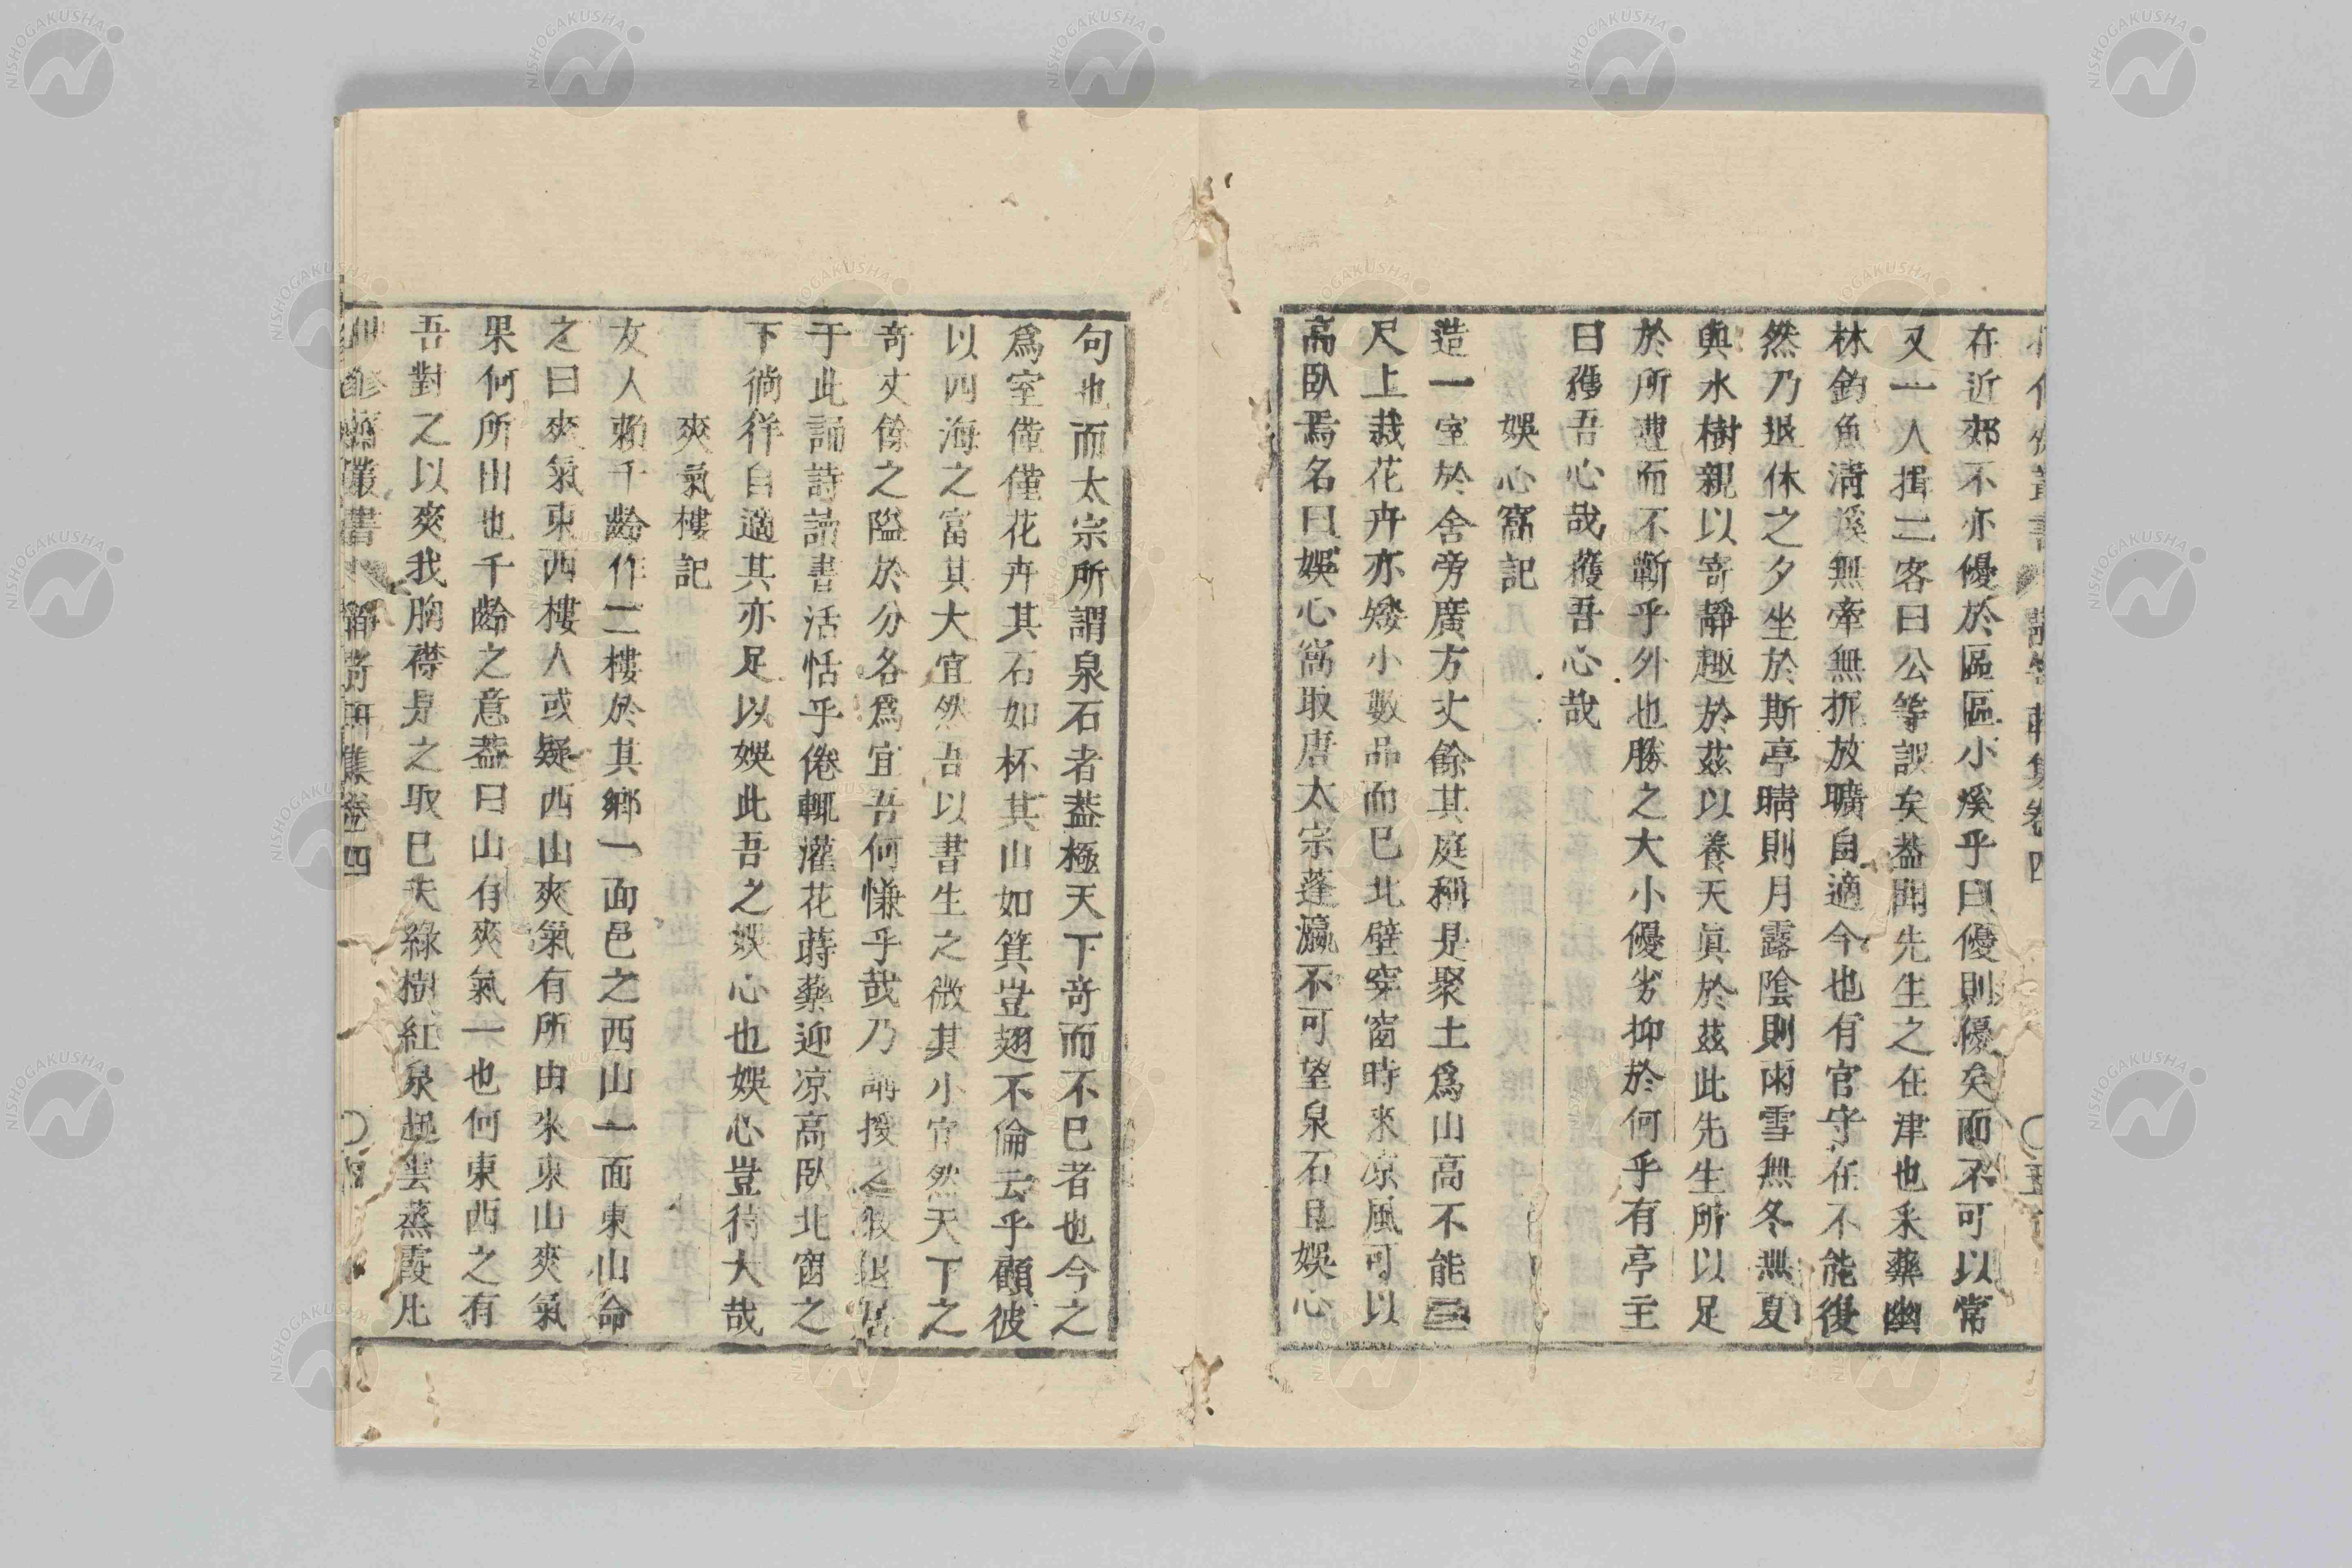 在近郊不亦優於區區小溪乎曰優則優矣而不可以常
又一人揖二客曰公等誤矣葢聞先生之在津也釆藥幽
林釣魚淸溪無牽無拘放曠自適今也有官守在不能復
然乃退休之夕坐於斯亭晴則月露陰則雨雪無冬無夏
與水樹親以寄靜趣於茲以養天眞於茲此先生所以足
於所遭而不蘄乎外也勝之大小優劣抑於何乎有亭主
曰獲吾心哉獲吾心哉
娛心窩記
造一室於舍旁廣方丈餘其庭稱是聚土爲山高不能三
尺上裁花卉亦矮小數品而已北壁穿窗時來凉風可以
高臥焉名曰娛心窩取唐太宗蓬瀛不可望泉石且娛心
句也而太宗所謂泉石者葢極天下奇而不已者也今之
爲室僅僅花卉其石如杯其山如箕豈翅不倫云乎顧彼
以四海之富其大宜然吾以書生之微其小宜然天下之
奇丈餘之隘於分各爲宜吾何慊乎哉乃講授之暇退居
于此誦詩讀書活恬乎倦輒灌花蒔藥迎凉高臥北窗之
下徜徉自適其亦足以娛此吾之娛心也娛心豈待大哉
爽氣樓記
友人賴千齡作二樓於其鄉一面邑之西山一面東山命
之曰爽氣東西樓人或疑西山爽氣有所由來東山爽氣
果何所由也千齡之意葢曰山有爽氣一也何東西之有
吾對之以爽我胸襟是之取已夫綠樹紅泉起雲蒸霞凡
叢書 集卷四